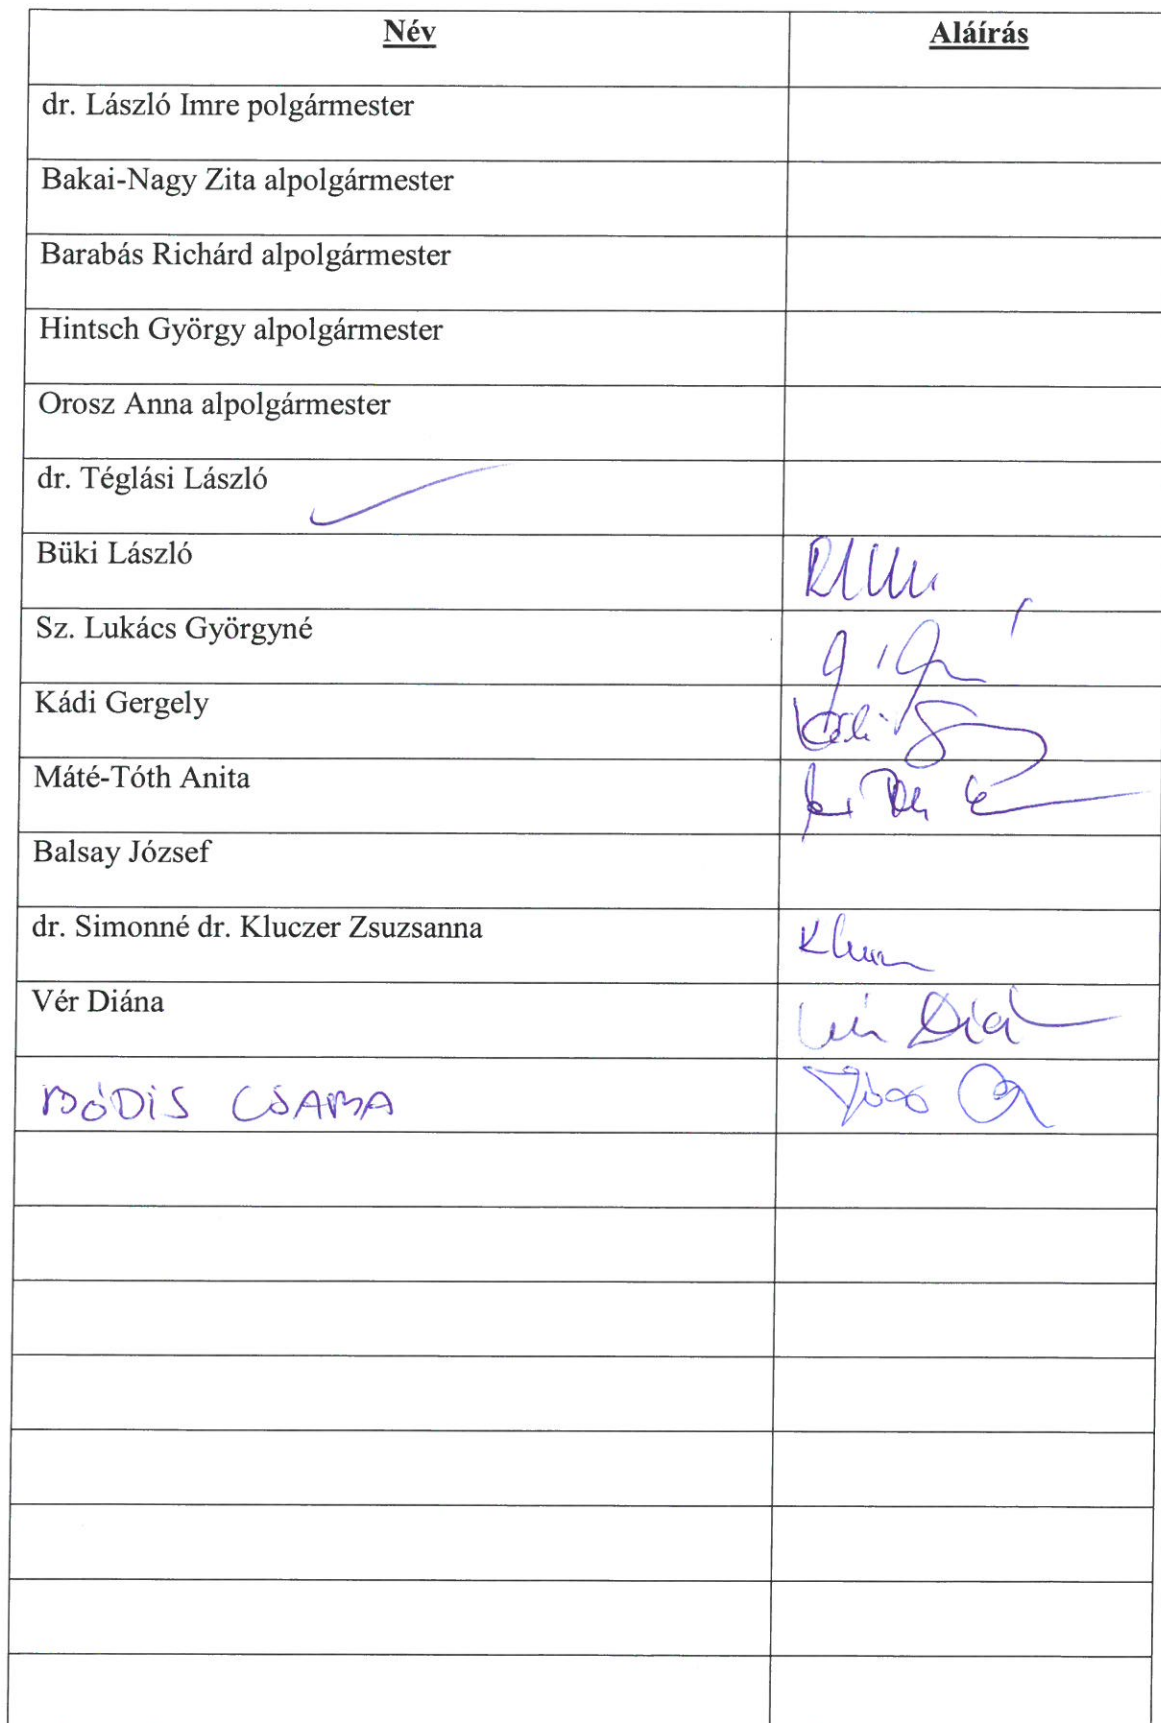 Név Aláírás
dr. László Imre polgármester
Bakai-Nagy Zita alpolgármester
Barabás Richárd alpolgármester
Hintsch György alpolgármester
Orosz Anna alpolgármester
dr. Téglási László
Büki László
Sz. Lukács Györgyné
Kádi Gergely
Máté-Tóth Anita
Balsay József
dr. Simonné dr. Kluczer Zsuzsanna
Vér Diána
BÓDIS CSABA